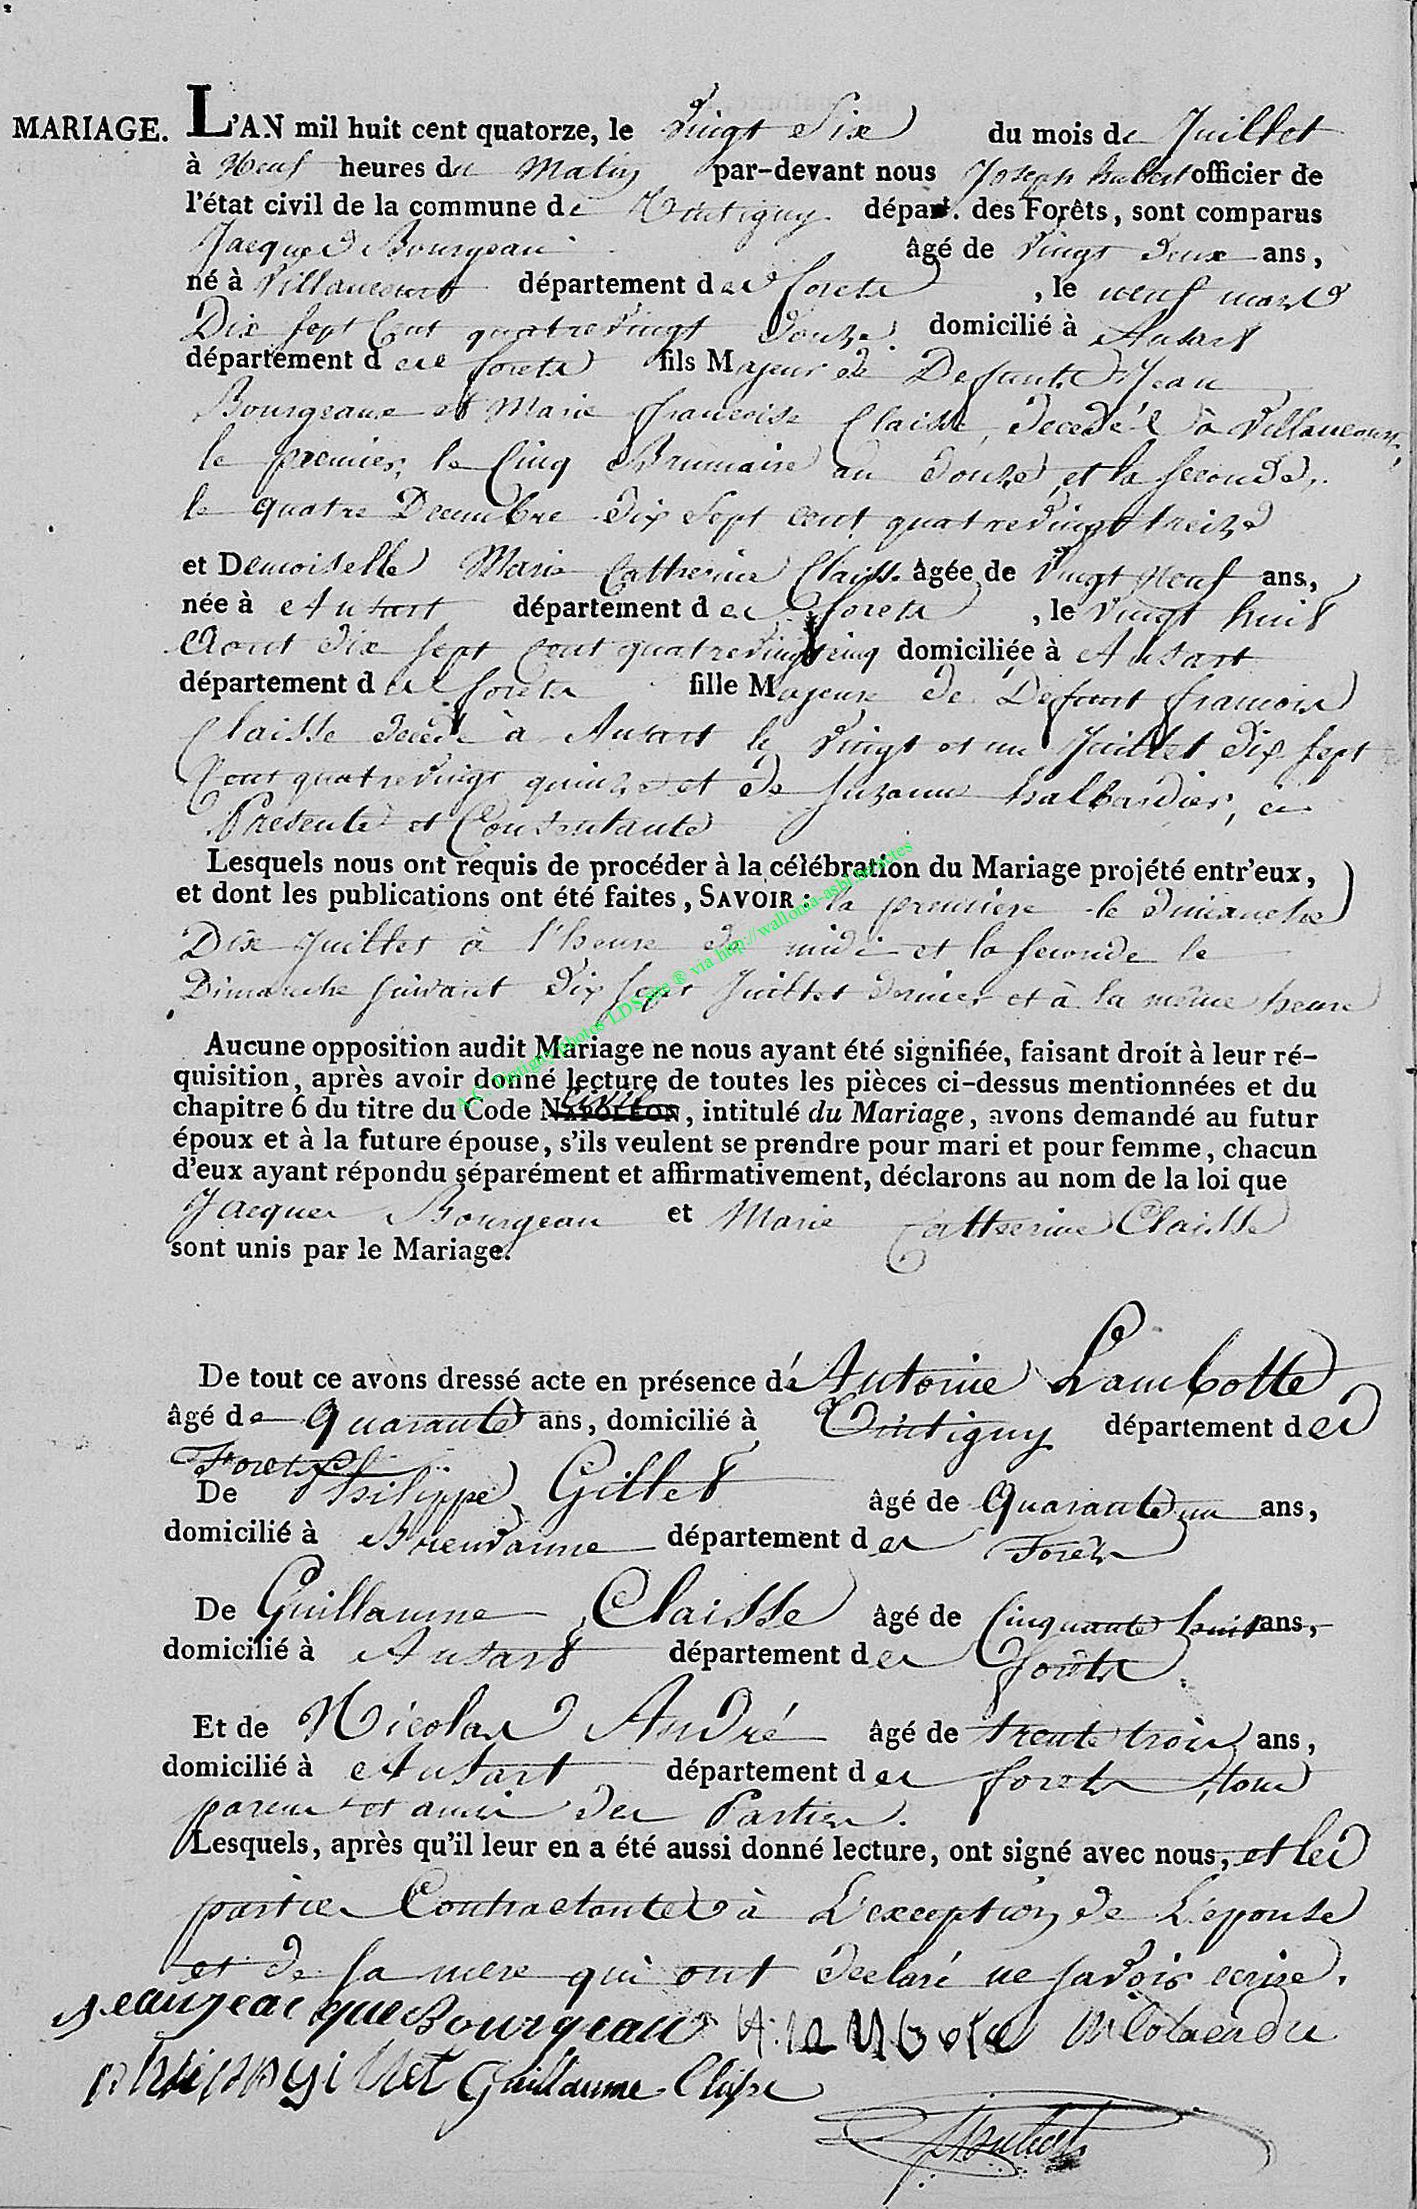 MARIAGE. L'AN mil huit cent quatorze, le Vingt Six du mois de Juillet
à Neuf heures du Matin par-devant nous Joseph hubert officier de
l'état civil de la commune de Tintigny départ. des Forêts, sont comparus
Jacques Bourgeau âgé de Vingt deux ans,
né à Villancourt département des forets, le neuf mars
Dix sept Cent quatre Vingt Douze domicilié à Ansart
département des forets fils Majeur de Defunts Jean
Bourgeaux et Marie francoise Claisse, decedés à Villancourt,
le premier, le Cinq Brumaire an douze, et la seconde,
le quatre Decembre dix sept cent quatre vingt treize
et Demoiselle Marie Catherine Claisse âgée de Vingt Neuf ans,
née à Ansart département des forets, le vingt huit
Aout dix sept Cent quatre vingt cinq domiciliée à Ansart
département des forets fille Majeure de Defunt francois
Claisse decedé à Ansart le Vingt et un Juillet dix sept
Cent quatre vingt quinze et de Suzanne halbardier, ci
Presente et Consentante
Lesquels nous ont requis de procéder à la célébration du Mariage projété entr'eux,
et dont les publications ont été faites, SAVOIR : la premiere le dimanche
Dix Juillet à l'heure de midi et la seconde le
Dimanche suivant dix sept Juillet dernier et à la même heure
Aucune opposition audit Mariage ne nous ayant été signifiée, faisant droit à leur ré-
quisition, après avoir donné lecture de toutes les pièces ci-dessus mentionnées et du
chapitre 6 du titre du Code NAPOLÉON civil, intitulé du Mariage, avons demandé au futur
époux et à la future épouse, s'ils veulent se prendre pour mari et pour femme, chacun
d'eux ayant répondu séparément et affirmativement, déclarons au nom de la loi que
Jacques Bourgeau et Marie Catherine Claisse
sont unis par le Mariage.
De tout ce avons dressé acte en présence de Antoine Lambotte
âgé de Quarante ans, domicilié à Tintigny département des
Forets
De Philippe Gillet âgé de Quarante un ans,
domicilié à Breuvanne département des Forêts
De Guillaume Claisse âgé de Cinquante huit ans,
domicilié à Ansart département des forêts
Et de Nicolas André âgé de trente trois ans,
domicilié à Ansart département des forets, tous
parens et amis des Parties.
Lesquels, après qu'il leur en a été aussi donné lecture, ont signé avec nous, et les
parties Contractantes à L'exception de L'épouse
et de sa mere qui ont declaré ne savoir ecrire.
jeanjeacque Bourgeau
Guillaume Claisse
JHubert
A.C. Tintigny photos LDS site ® via http://wallonia-asbl.be/actes